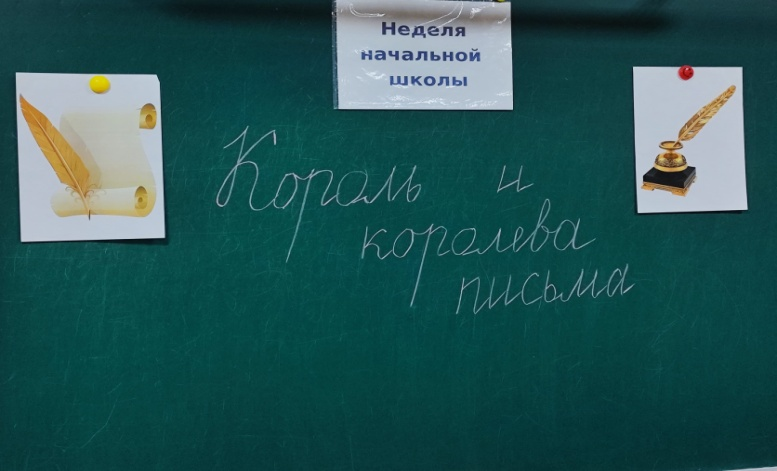 Неделя
начальной
школы
Король и
королева
письма